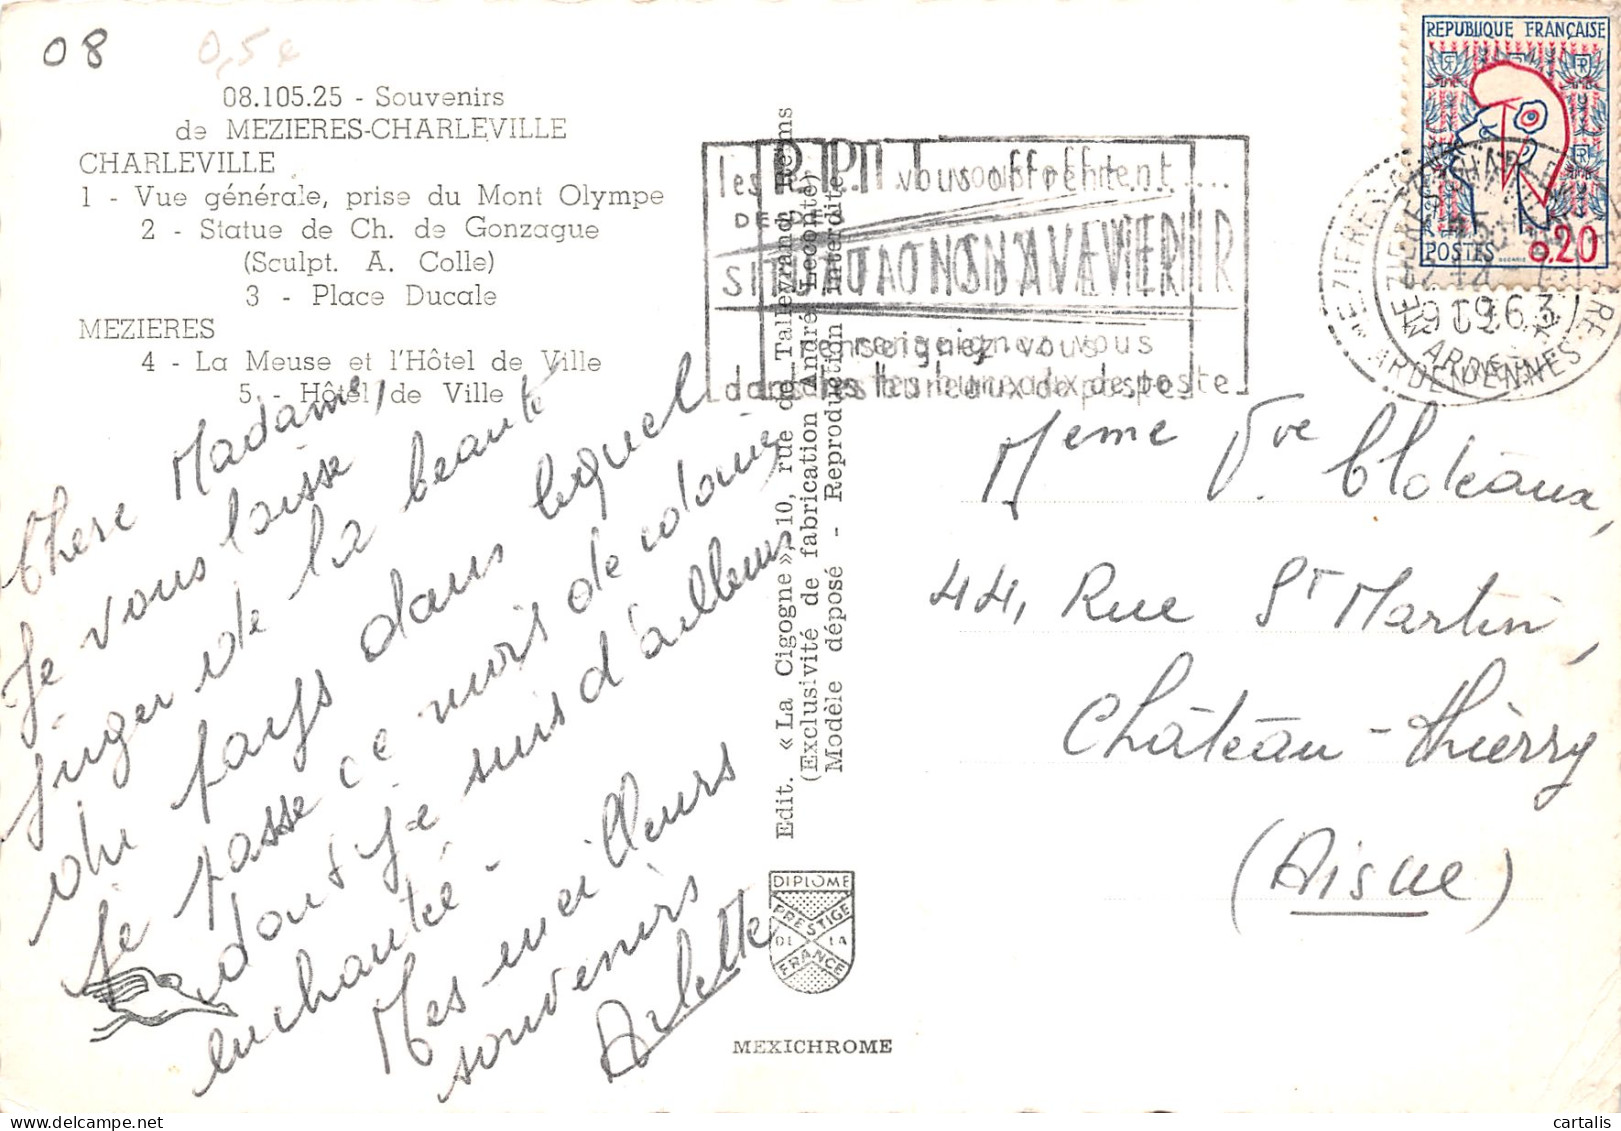 08
0,5€
08.105.25 - Souvenirs
de MEZIERES-CHARLEVILLE
CHARLEVILLE
1 - Vue générale, prise du Mont Olympe
2 - Statue de Ch. de Gonzague
(Sculpt. A. Colle)
3 - Place Ducale
MEZIERES
4 - La Meuse et l'Hôtel de Ville
5 - Hôtel de Ville
Chère Madame,
Je vous laisse
juger de la beauté
du pays dans lequel
je passe ce mois de colonie
dont je suis d'ailleurs
enchantée -
Mes meilleurs
souvenirs
Arlette
Edit. « La Cigogne », 10, rue de Talleyrand, Reims
(Exclusivité de fabrication André Leconte)
Modèle déposé - Reproduction interdite
DIPLOME
PRESTIGE
DE LA
FRANCE
MEXICHROME
les P.T.T. vous offrent
DES
SITUATIONS D'AVENIR
renseignez-vous
dans les bureaux de poste
REPUBLIQUE FRANÇAISE
POSTES 0.20
1963
ARDENNES
Meme Vve Cloteaux,
44, Rue St Martin,
Château-Thierry
(Aisne)
cartalis